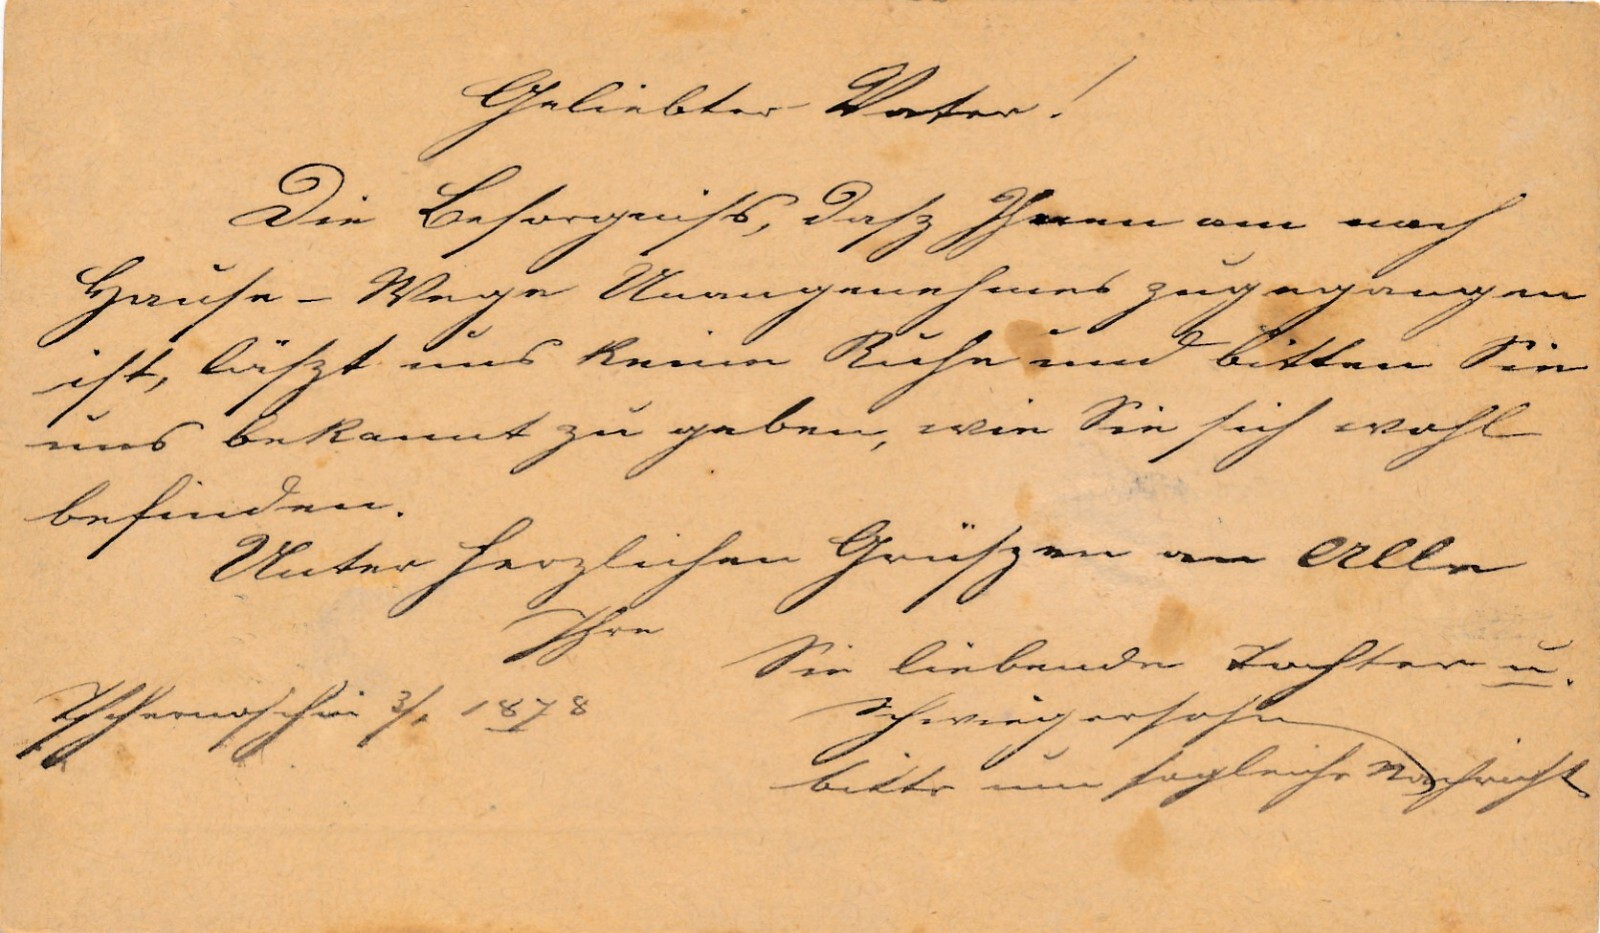 Geliebter Vater!
Die Besorgniß, daß Ihnen am nach
Hause - Wege Unangenehmes zugegangen
ist, läßt uns keine Ruhe und bitten Sie
uns bekannt zu geben, wie Sie sich wohl
befinden.
Unter herzlichen Grüßen an Alle
Ihre
Sie liebende Tochter u.
Schwiegersohn
Tschernoschin 3/1 1878
bitte um sogleiche Nachricht